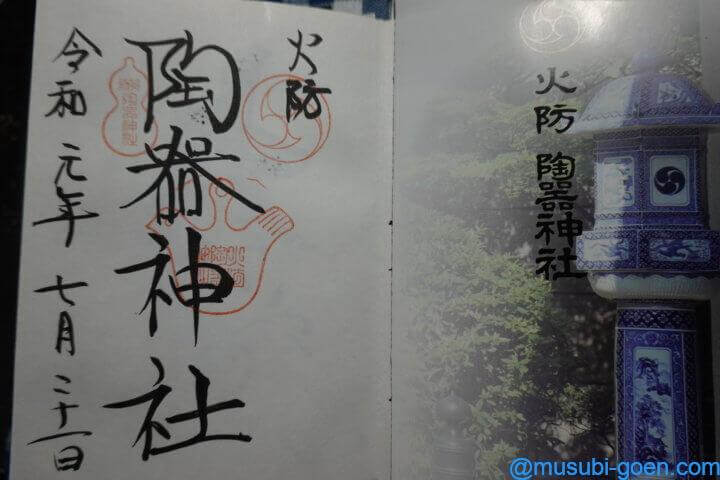 火防
陶器神社
令和元年七月二十一日
火防 陶器神社
@musubi-goen.com